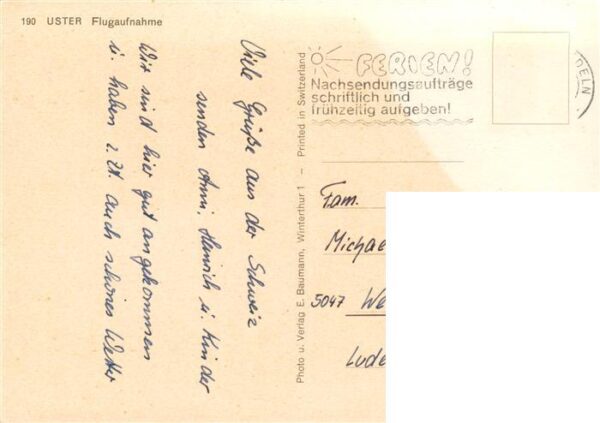 190 USTER Flugaufnahme
Wir sind hier gut angekommen
u. haben z. Zt. auch schönes Wetter
Viele Grüße aus der Schweiz
senden Anni, Heinrich u. Kinder
Photo u. Verlag E. Baumann, Winterthur 1 – Printed in Switzerland
FERIEN!
Nachsendungsaufträge
schriftlich und
frühzeitig aufgeben!
DELN
Fam.
Michae
5047 We
Lude